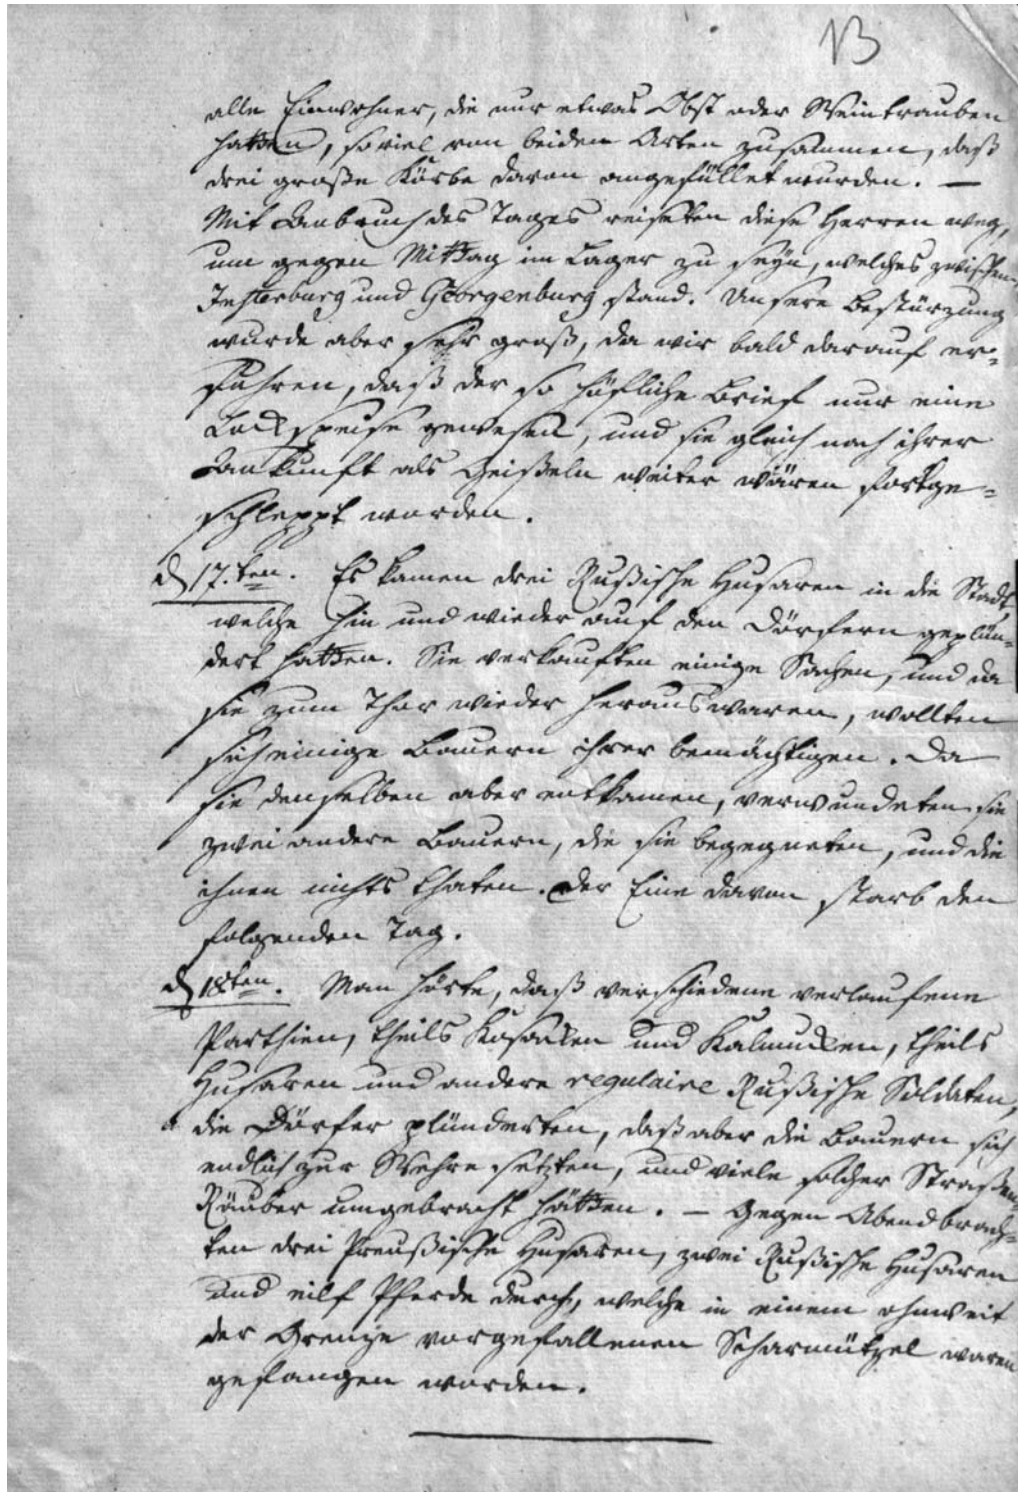 13
alle Einwohner, die nur etwas Obst oder Weintrauben
hatten, soviel von beiden Arten zusammen, daß
drei große Körbe davon angefüllet wurden. —
Mit Anbruch des Tages reiseten diese Herren weg,
um gegen Mittag im Lager zu seyn, welches zwischen
Insterburg und Georgenburg stand. Unsere Bestürzung
wurde aber sehr groß, da wir bald darauf er=
fuhren, daß der so höfliche Brief nur eine
Lockspeise gewesen, und sie gleich nach ihrer
Ankunft als Geißeln weiter wären fortge=
schleppt worden.
d 17.ten. Es kamen drei Rußische Husaren in die Stadt,
welche hin und wieder auf den Dörfern geplün=
dert hatten. Sie verkauften einige Sachen, und da
sie zum Thor wieder heraus waren, wollten
sich einige Bauern ihrer bemächtigen. Da
sie denselben aber entkamen, verwundeten sie
zwei andere Bauern, die sie begegneten, und die
ihnen nichts thaten. Der Eine davon starb den
folgenden Tag.
d 18ten. Man hörte, daß verschiedene verlaufene
Parthien, theils Kosacken und Kalmucken, theils
Husaren und andere regulaire Rußische Soldaten,
die Dörfer plünderten, daß aber die Bauern sich
endlich zur Wehre setzten, und viele solcher Straßen=
Räuber umgebracht hätten. — Gegen Abend brach=
ten drei Preußische Husaren, zwei Rußische Husaren
und eilf Pferde durch, welche in einem ohnweit
der Grenze vorgefallenen Scharmützel waren
gefangen worden.